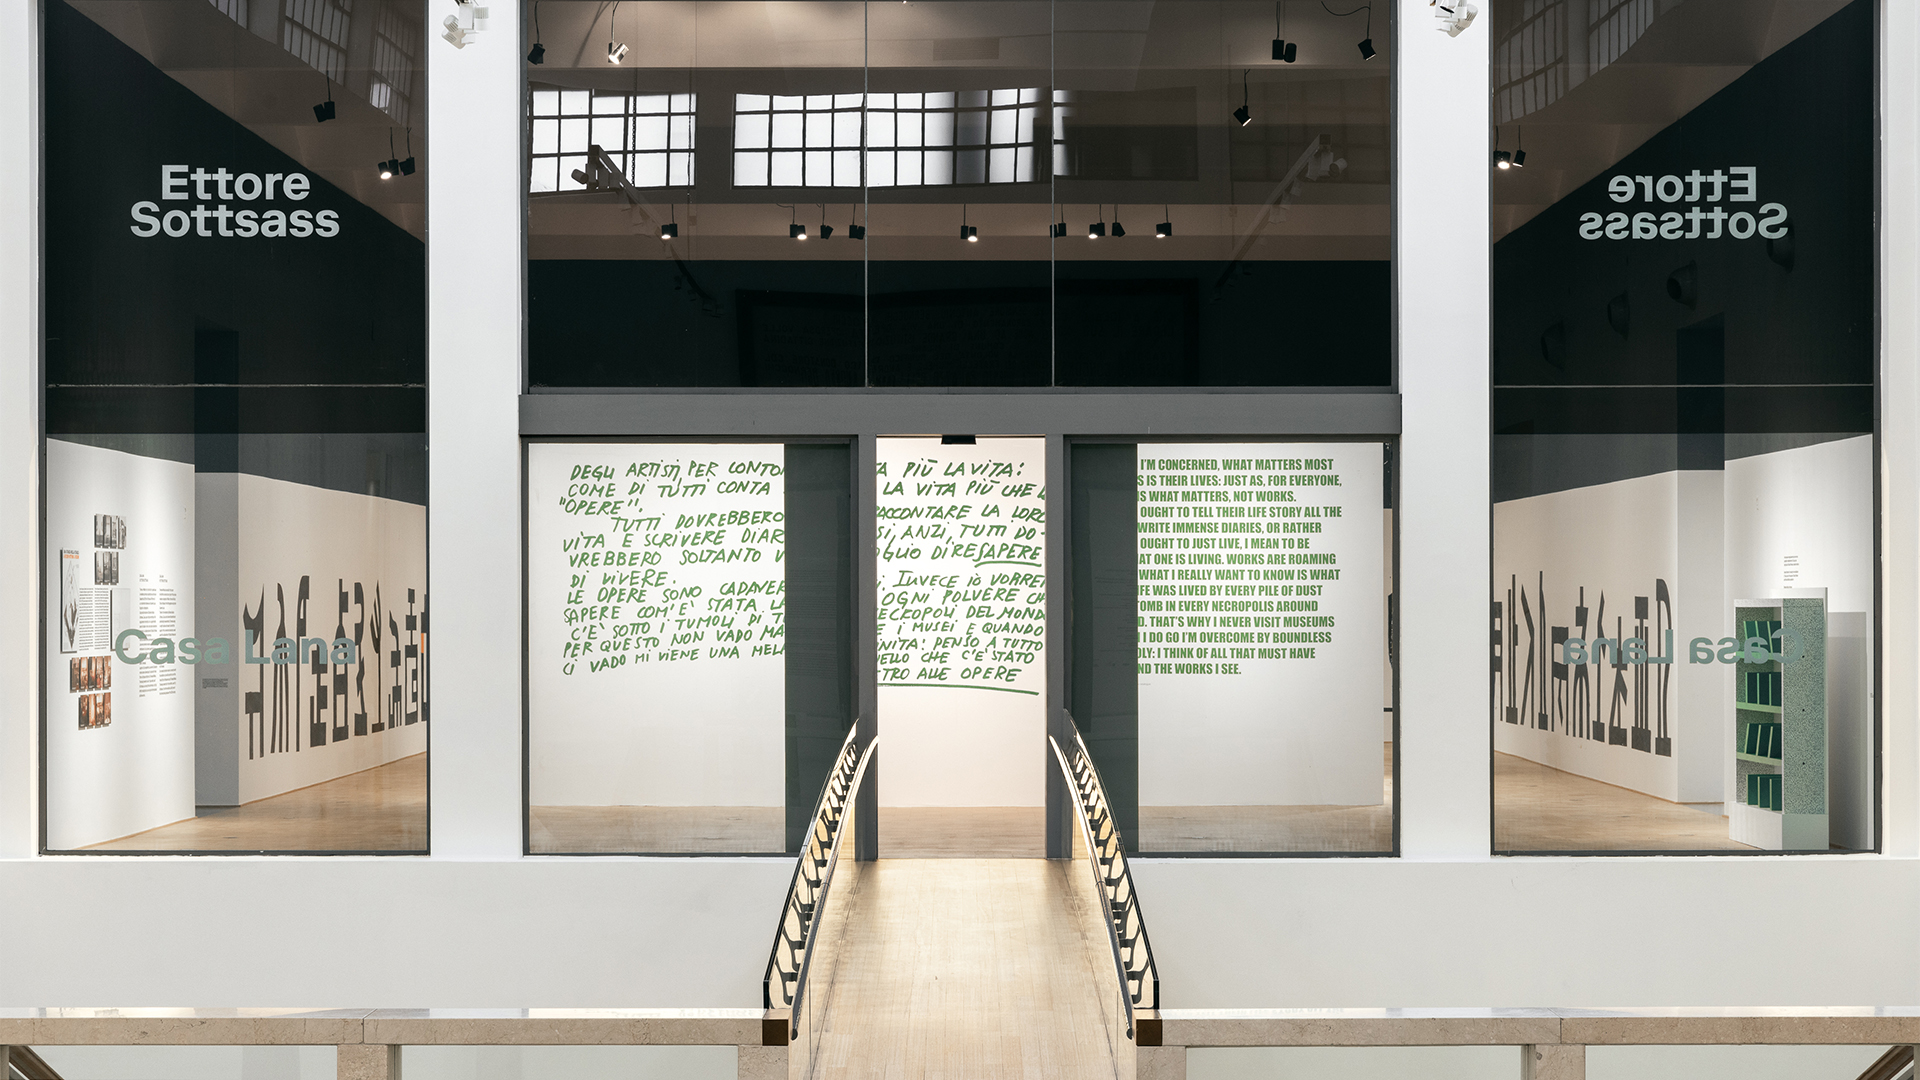 Ettore
Sottsass
Casa Lana
DEGLI ARTISTI, PER CONTO
COME DI TUTTI CONTA
"OPERE".
TUTTI DOVREBBERO
VITA E SCRIVERE DIAR
VREBBERO SOLTANTO V
DI VIVERE.
LE OPERE SONO CADAVER
SAPERE COM'E' STATA LA
C'E' SOTTO I TUMOLI DI T
PER QUESTO NON VADO MA
CI VADO MI VIENE UNA MEL
TA PIÙ LA VITA:
LA VITA PIÙ CHE L
RACCONTARE LA LORO
SI, ANZI, TUTTI DO-
OGLIO DIRE SAPERE
I. INVECE IO VORREI
OGNI POLVERE CH
ECROPOLI DEL MONDO
E I MUSEI E QUANDO
NITA: PENSO A TUTTO
UELLO CHE C'E' STATO
TRO ALLE OPERE
I'M CONCERNED, WHAT MATTERS MOST
S IS THEIR LIVES: JUST AS, FOR EVERYONE,
IS WHAT MATTERS, NOT WORKS.
OUGHT TO TELL THEIR LIFE STORY ALL THE
WRITE IMMENSE DIARIES, OR RATHER
OUGHT TO JUST LIVE, I MEAN TO BE
AT ONE IS LIVING. WORKS ARE ROAMING
WHAT I REALLY WANT TO KNOW IS WHAT
IFE WAS LIVED BY EVERY PILE OF DUST
TOMB IN EVERY NECROPOLIS AROUND
D. THAT'S WHY I NEVER VISIT MUSEUMS
I DO GO I'M OVERCOME BY BOUNDLESS
OLY: I THINK OF ALL THAT MUST HAVE
ND THE WORKS I SEE.
Ettore
Sottsass
Casa Lana